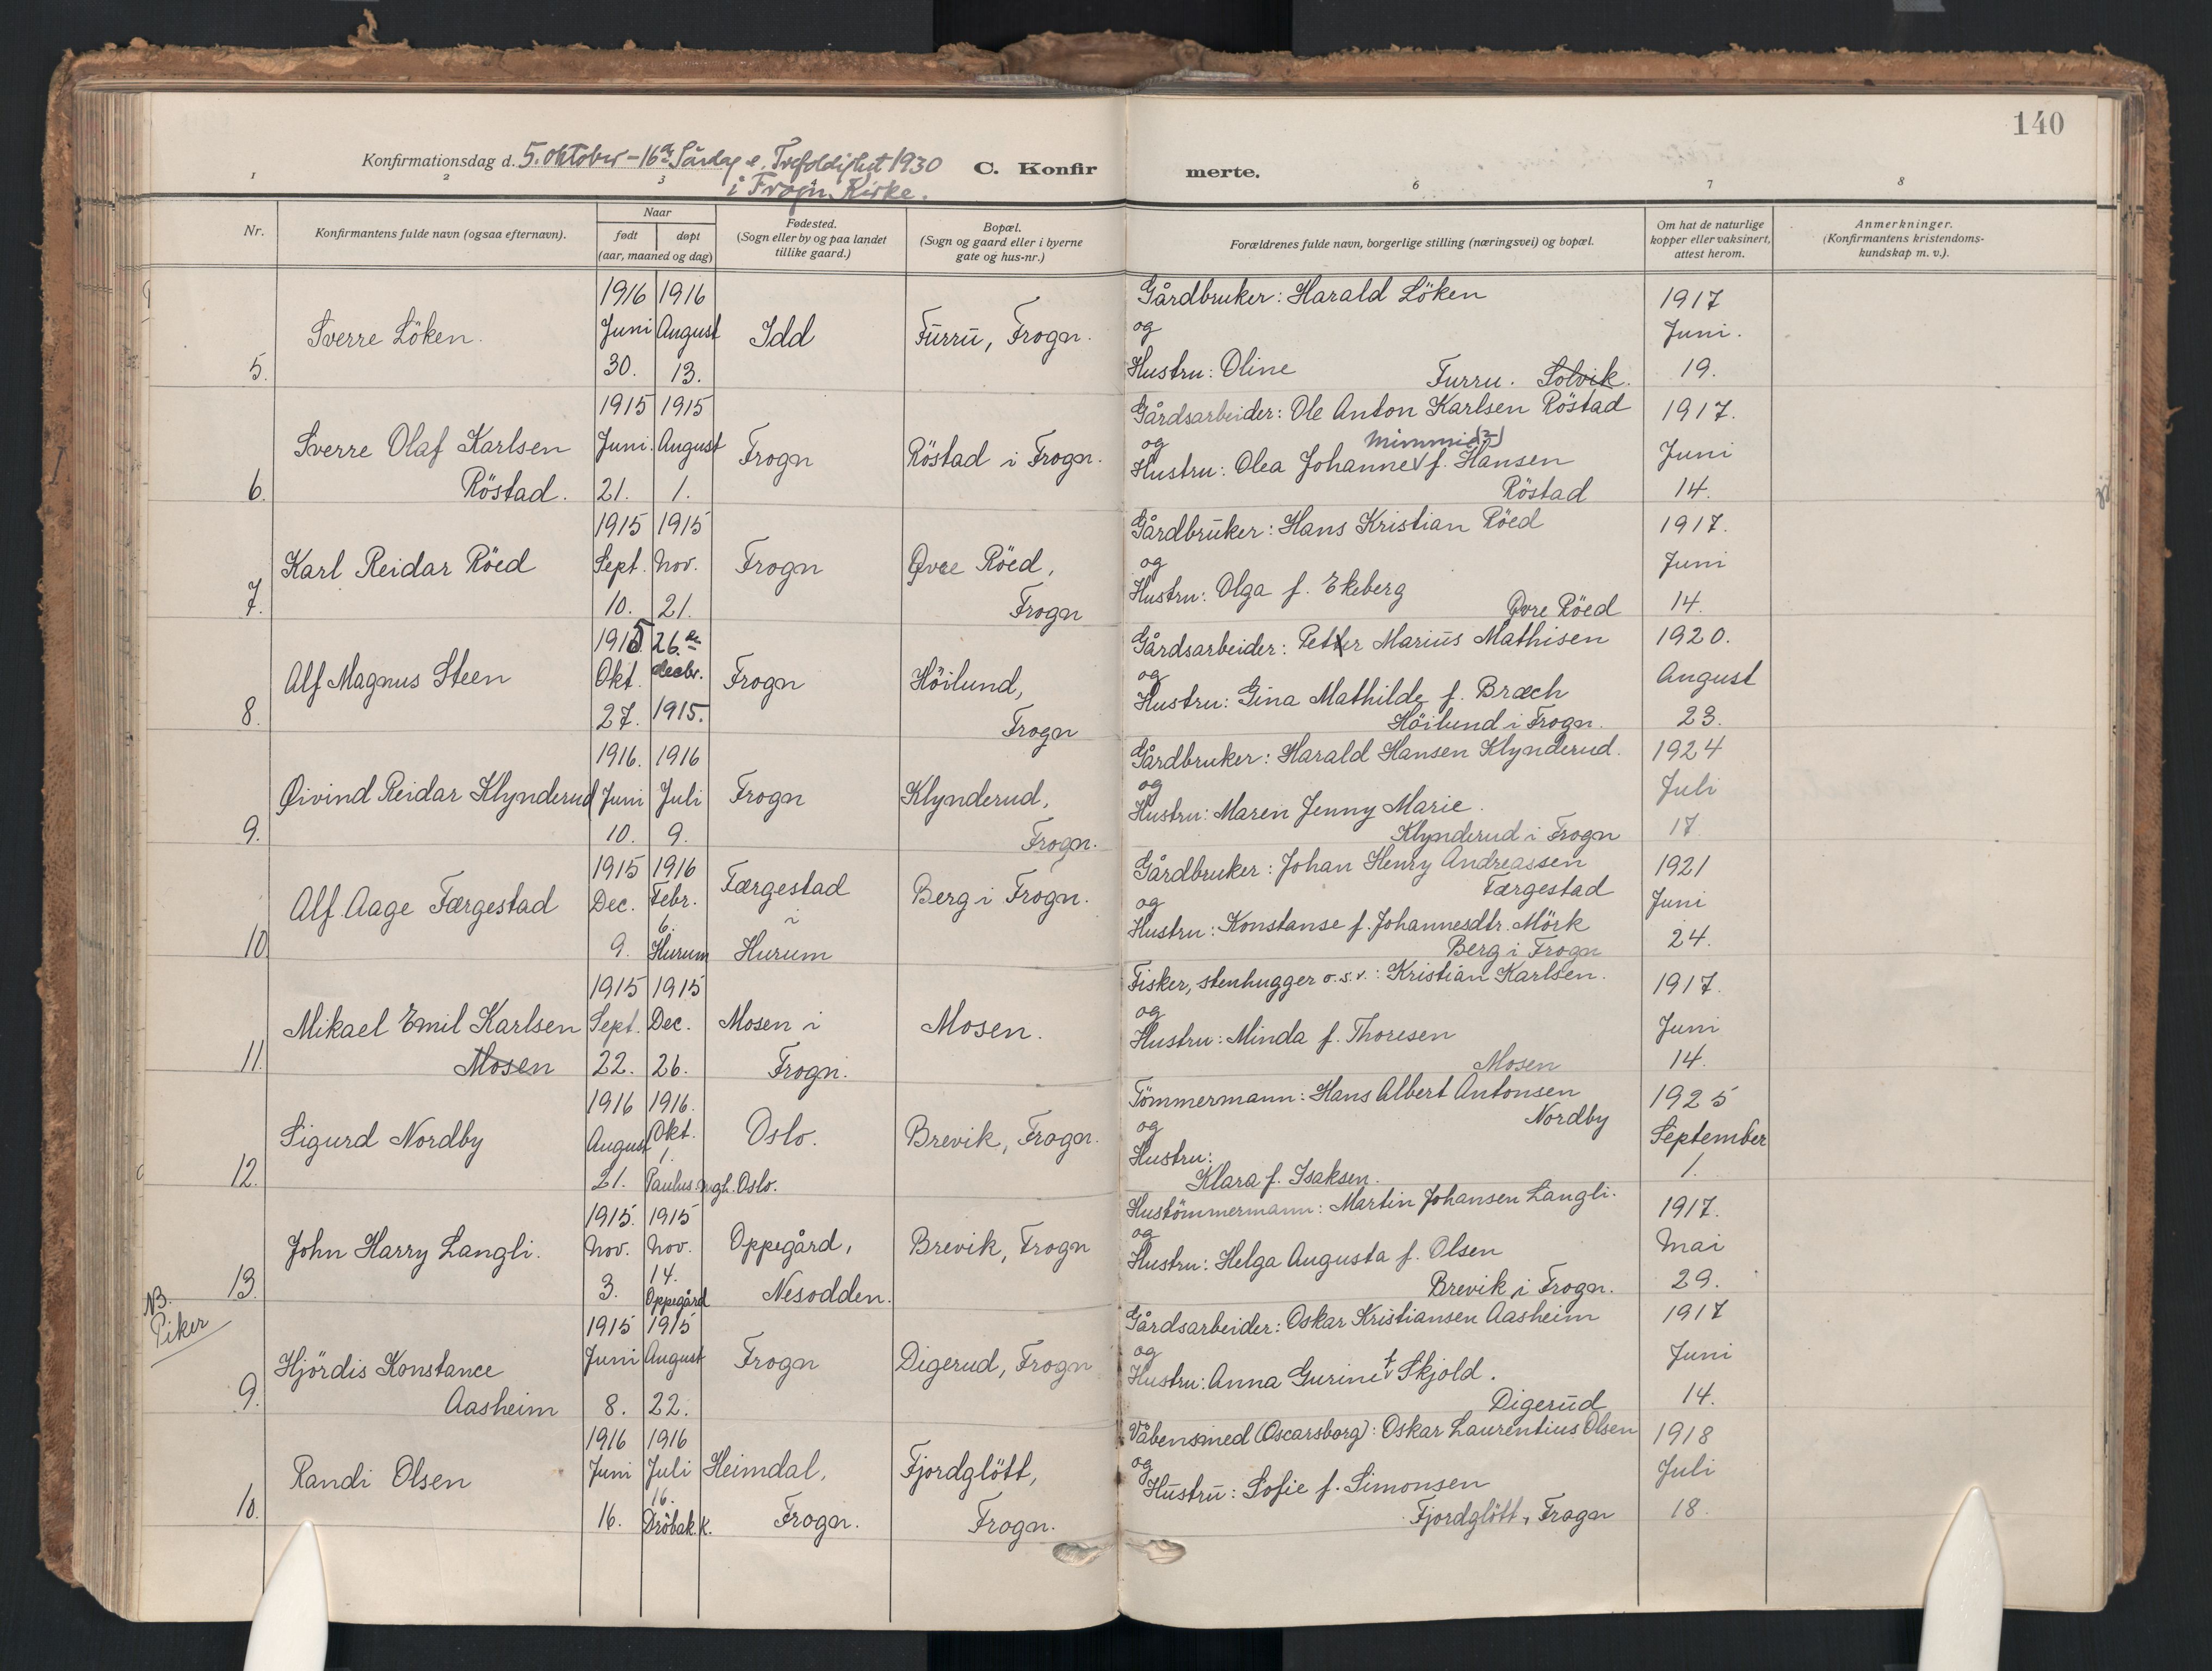 140
Konfirmationsdag d. 5. Oktober - 16de Søndag e. Trefoldighet 1930
i Frogn Kirke.
C. Konfirmerte.
1 2 3 6 7 8
Nr.
Konfirmantens fulde navn (ogsaa efternavn).
Naar
født
døpt
(aar, maaned og dag)
Fødested.
(Sogn eller by og paa landet
tillike gaard.)
Bopæl.
(Sogn og gaard eller i byerne
gate og hus-nr.)
Forældrenes fulde navn, borgerlige stilling (næringsvei) og bopæl.
Om hat de naturlige
kopper eller vaksinert,
attest herom.
Anmerkninger.
(Konfirmantens kristendoms-
kundskap m. v.).
5.
Sverre Löken.
1916
Juni
30.
1916
August
13.
Idd
Furru, Frogn.
Gårdbruker: Harald Löken
og
Hustru: Oline
Furru. Solvik.
1917
Juni.
19.
6.
Sverre Olaf Karlsen
Röstad.
1915
Juni.
21.
1915
August
1.
Frogn
Röstad i Frogn.
Gårdsarbeider: Ole Anton Karlsen Röstad
og
Mimmi (?)
Hustru: Olea Johanne f. Hansen
Röstad
1917.
Juni
14.
7.
Karl Reidar Röed
1915
Sept.
10.
1915
Nov.
21.
Frogn
Øvre Röed,
Frogn
Gårdbruker: Hans Kristian Röed
og
Hustru: Olga f. Ekeberg
Øvre Röed
1917.
Juni
14.
8.
Alf Magnus Steen
1915
Okt.
27.
26.de
decbr.
1915.
Frogn
Höilund,
Frogn
Gårdsarbeider: Petter Marius Mathisen
og
Hustru: Gina Mathilde f. Bræch
Höilund i Frogn.
1920.
August
23.
9.
Øivind Reidar Klynderud
1916.
Juni
10.
1916
Juli
9.
Frogn
Klynderud,
Frogn.
Gårdbruker: Harald Hansen Klynderud.
og
Hustru: Maren Jenny Marie.
Klynderud i Frogn
1924
Juli
17
10.
Alf Aage Færgestad
1915
Dec.
9.
1916
Febr.
6.
Hurum
Færgestad
i
Hurum
Berg i Frogn.
Gårdbruker: Johan Henry Andreassen
Færgestad
og
Hustru: Konstanse f. Johannesdtr. Mörk
Berg i Frogn
1921
Juni
24.
11.
Mikael Emil Karlsen
Mosen
1915
Sept.
22.
1915
Dec.
26.
Mosen i
Frogn.
Mosen.
Fisker, stenhugger o.s.v.: Kristian Karlsen.
og
Hustru: Minda f. Thoresen
Mosen
1917.
Juni
14.
12.
Sigurd Nordby
1916
August
21.
1916.
Okt.
1.
Paulus mgh. Oslo.
Oslo.
Brevik, Frogn.
Tömmermann: Hans Albert Antonsen
Nordby
og
Hustru:
Klara f. Isaksen.
1925
September
1.
13.
John Harry Langli.
1915.
Nov.
3.
1915
Nov.
14.
Oppegård
Oppegård,
Nesodden.
Brevik, Frogn
Hustömmermann: Martin Johansen Langli.
og
Hustru: Helga Augusta f. Olsen
Brevik i Frogn.
1917.
Mai
29.
NB.
Piker
9.
Hjördis Konstance
Aasheim
1915
Juni
8.
1915
August
22.
Frogn
Digerud, Frogn
Gårdsarbeider: Oskar Kristiansen Aasheim
og
Hustru: Anna Gurine f. Skjold.
Digerud
1917
Juni
14.
10.
Randi Olsen
1916
Juni
16.
1916
Juli
16.
Dröbak k.
Heimdal,
Frogn.
Fjordglött,
Frogn.
Våbensmed (Oscarsborg): Oskar Laurentius Olsen
og
Hustru: Sofie f. Simonsen
Fjordglött, Frogn
1918
Juli
18.